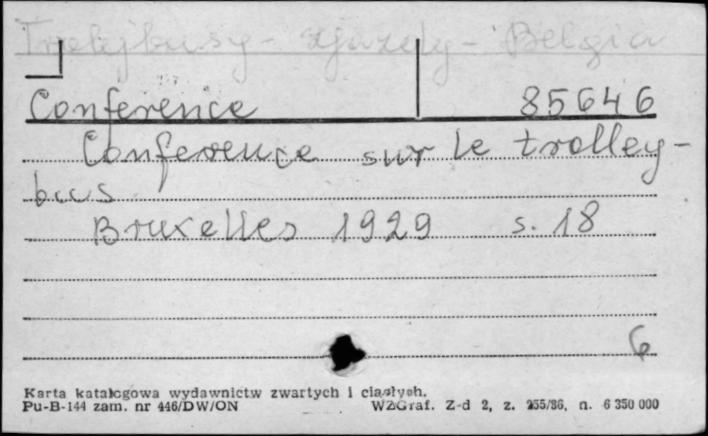 Trolejbusy - zjazdy - Belgia
Conference 85646
Conference sur le trolley-
bus
Bruxelles 1929 s. 18
6
Karta katalogowa wydawnictw zwartych i ciągłych.
Pu-B-144 zam. nr 446/DW/ON WZGraf. Z-d 2, z. 255/86, n. 6 350 000